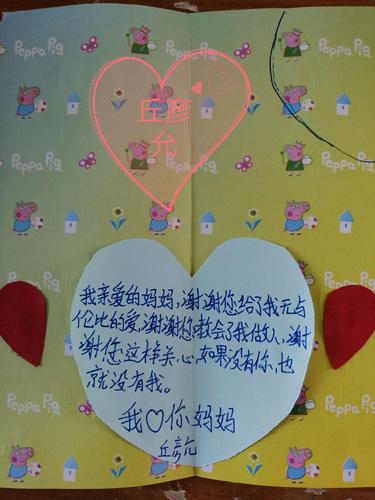 Peppa Pig
Peppa Pig
丘彦
允
Peppa Pig
Peppa Pig
我亲爱的妈妈，谢谢您给了我无与
伦比的爱，谢谢您教会了我做人，谢
谢您这样关心，如果没有你，也
就没有我。
Peppa Pig
我♡你妈妈
丘彦允